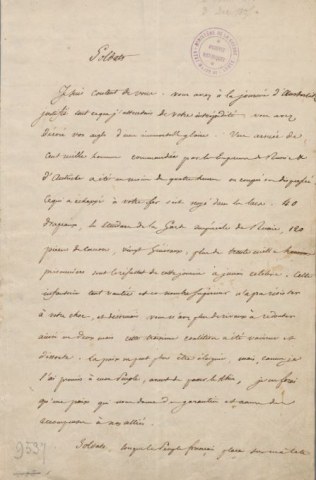 2 Dec 1805
Soldats
Je suis content de vous. vous avez à la journée d'Austerlitz
justifié tout ce que j'attendais de votre intrépidité. vous avez
décoré vos aigles d'une immortelle gloire. Une armée de
cent mille hommes commandée par les Empereurs de Russie &
d'Autriche a été en moins de quatre heures ou coupée ou dispersée
Ce qui a échappé à votre fer s'est noyé dans les lacs. 40
Drapeaux, les étendards de la Garde impériale de Russie, 120
pièces de canon, vingt Généraux, plus de trente mille hommes
prisonniers sont le résultat de cette journée à jamais célèbre. Cette
infanterie tant vantée et en nombre supérieur n'a pu résister
à votre choc, et désormais vous n'avez plus de rivaux à redouter
ainsi en deux mois cette troisième coalition a été vaincue et
dissoute. La paix ne peut plus être éloignée, mais comme je
l'ai promis à mon Peuple, avant de passer le Rhin, je ne ferai
qu'une paix qui nous donne des garanties et assure des
récompenses à nos alliés.
9537
Soldats, lorsque le Peuple français plaça sur ma tête